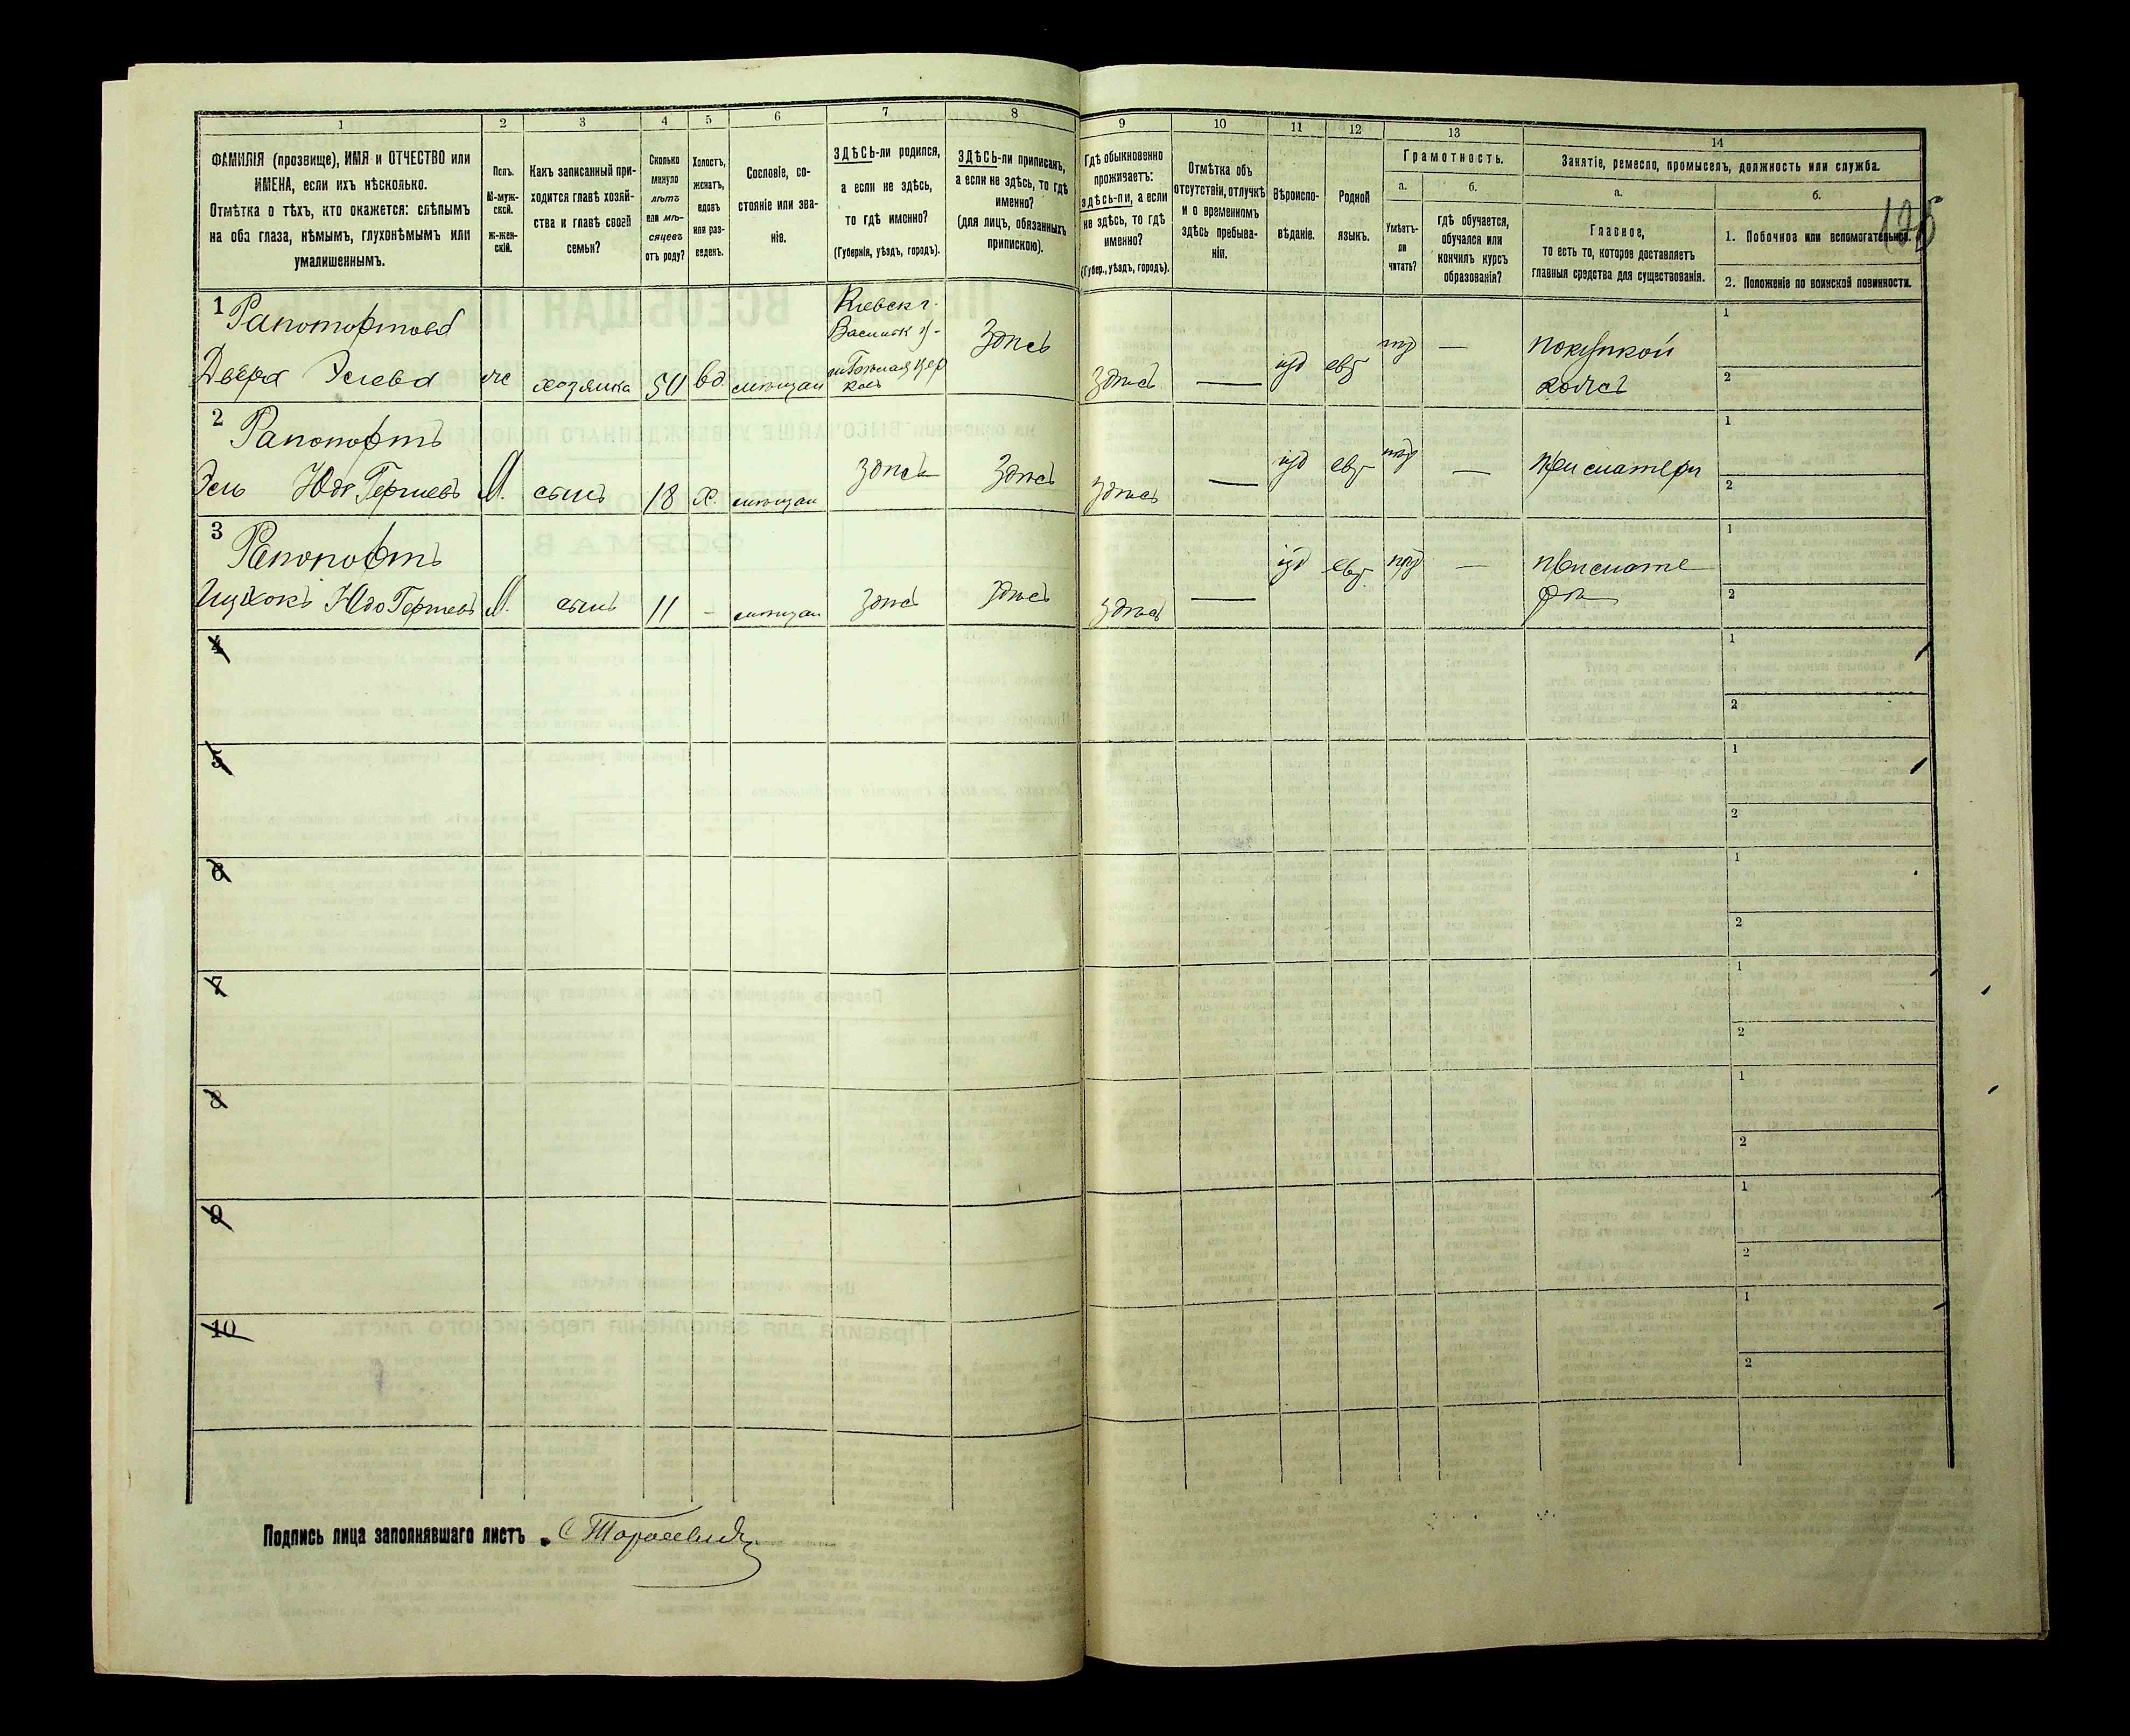 1
2
3
4
5
6
7
8
9
10
11
12
13
14
ФАМИЛІЯ (прозвище), ИМЯ и ОТЧЕСТВО или
ИМЕНА, если ихъ нѣсколько.
Отмѣтка о тѣхъ, кто окажется: слѣпымъ
на оба глаза, нѣмымъ, глухонѣмымъ или
умалишеннымъ.
Полъ.
М-муж-
ской.
ж-жен-
скій.
Какъ записанный при-
ходится главѣ хозяй-
ства и главѣ своей
семьи?
Сколько
минуло
лѣтъ
или мѣ-
сяцевъ
отъ роду?
Холостъ,
женатъ,
вдовъ
или раз-
веденъ.
Сословіе, со-
стояніе или зва-
ніе.
ЗДѢСЬ-ли родился,
а если не здѣсь,
то гдѣ именно?
(Губернія, уѣздъ, городъ).
ЗДѢСЬ-ли приписанъ,
а если не здѣсь, то гдѣ
именно?
(для лицъ, обязанныхъ
припискою).
Гдѣ обыкновенно
проживаетъ:
здѣсь-ли, а если
не здѣсь, то гдѣ
именно?
(Губер., уѣздъ, городъ).
Отмѣтка объ
отсутствіи, отлучкѣ
и о временномъ
здѣсь пребыва-
ніи.
Вѣроиспо-
вѣданіе.
Родной
языкъ.
Грамотность.
а.
Умѣетъ-
ли
читать?
б.
гдѣ обучается,
обучался или
кончилъ курсъ
образованія?
Занятіе, ремесло, промыселъ, должность или служба.
а.
Главное,
то есть то, которое доставляетъ
главныя средства для существованія.
б.
1. Побочное или вспомогательное.
2. Положеніе по воинской повинности.
1
Рапопортова
Двойра Элева
хозяйка 50 вд. мѣщан
Кіевск г.
Васильк у.
Здѣсь
Здѣсь
—
іуд
евр
—
покупкой
кожъ
1
2
2
Рапопортъ
Эль Юдо Гершевъ М. сынъ 18 х. мѣщан
Здѣсь
Здѣсь
Здѣсь
—
іуд
евр
—
при матери
1
2
3
Рапопортъ
Ицхокъ Юдо Гершевъ М. сынъ 11 - мѣщан
Здѣсь
Здѣсь
Здѣсь
—
іуд
евр
—
при мате
ри
1
2
4
1
2
5
1
2
6
1
2
7
1
2
8
1
2
9
1
2
10
1
2
Подпись лица заполнявшаго листъ